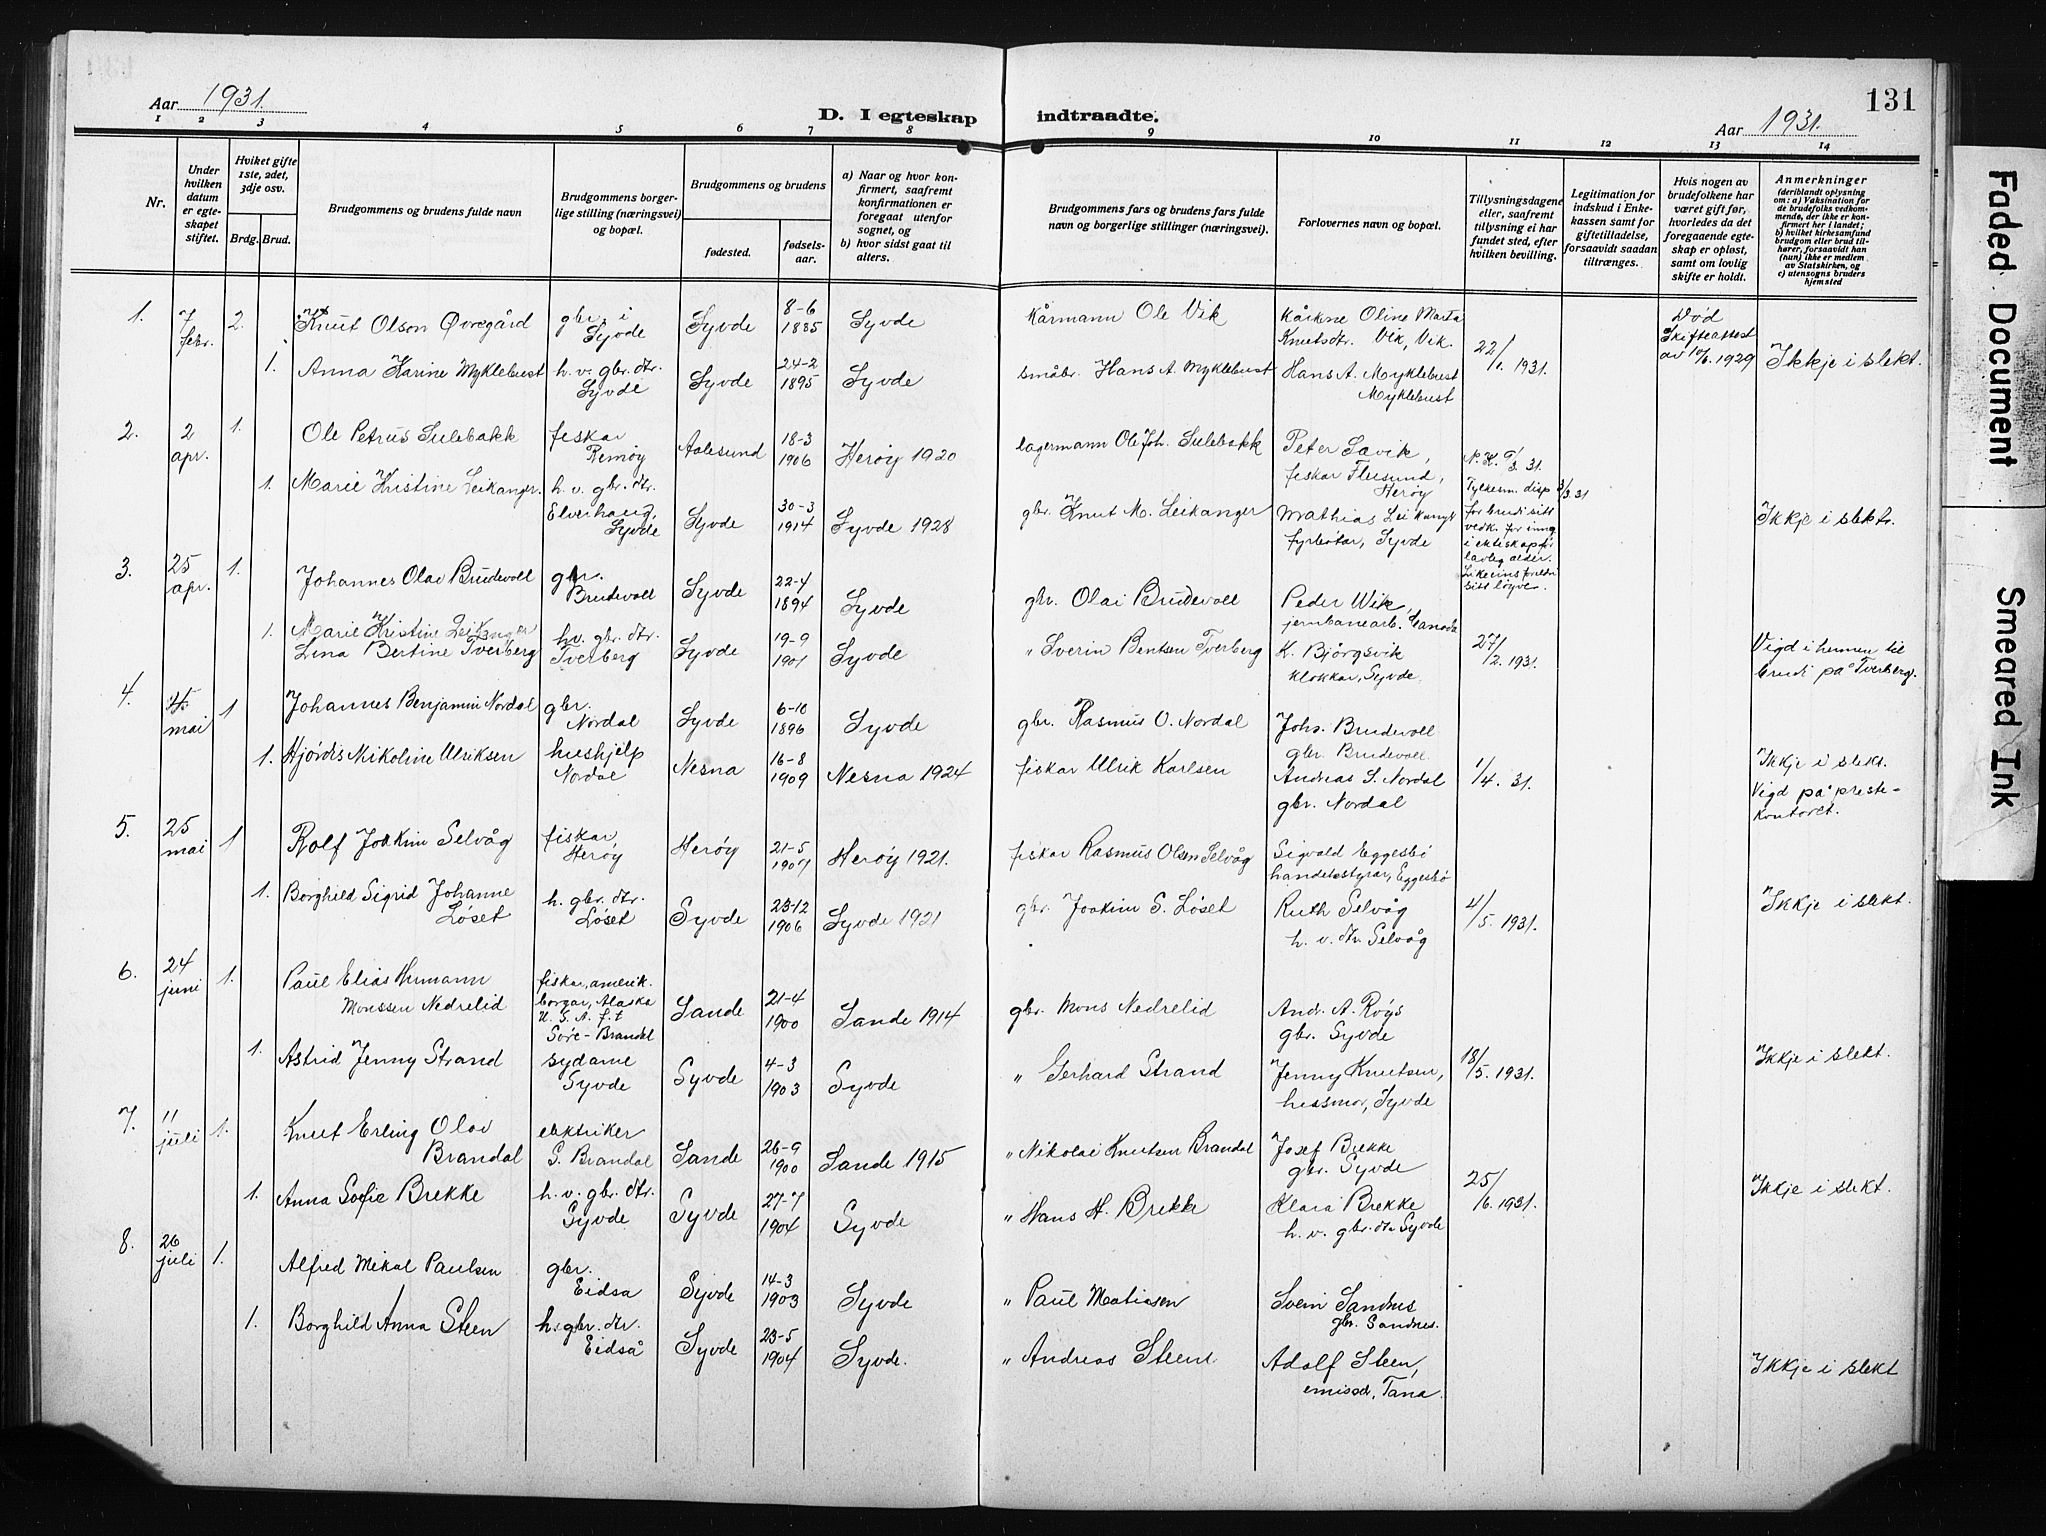 131
Aar 1931.
D. I egteskap indtraadte.
Aar 1931.
1 2 3 4 5 6 7 8 9 10 11 12 13 14
Nr.
Under hvilken datum er egteskapet stiftet.
Hviket gifte 1ste, 2det, 3dje osv.
Brdg. Brud.
Brudgommens og brudens fulde navn
Brudgommens borgerlige stilling (næringsvei) og bopæl.
Brudgommens og brudens
fødested.
fødselsaar.
a) Naar og hvor konfirmert, saafremt konfirmationen er foregaat utenfor sognet, og
b) hvor sidst gaat til alters.
Brudgommens fars og brudens fars fulde navn og borgerlige stillinger (næringsvei).
Forlovernes navn og bopæl.
Tillysningsdagene eller, saafremt tillysning ei har fundet sted, efter hvilken bevilling.
Legitimation for indskud i Enkekassen samt for giftetilladelse, forsaavidt saadan tiltrænges.
Hvis nogen av brudefolkene har været gift før, hvorledes da det foregaaende egteskap er opløst, samt om lovlig skifte er holdt.
Anmerkninger
(deriblandt oplysning om: a) Vaksination for de brudefolks vedkommende, der ikke er konfirmert her i landet; b) hvilket kirkesamfund brudgom eller brud tilhører, forsaavidt han (hun) ikke er medlem av Statskirken, og c) utensogns bruders hjemsted
1. 7 febr. 2. Knut Olson Øvregård gbr. i Syvde Syvde 8-6 1885 Syvde
Kårmann Ole Vik Kårkone Oline Marta Knutsdtr. Vik, Vik.
Død Skifteattest av 10/6. 1929
1. Anna Karine Myklebust h. v. gbr. dtr. Syvde Syvde 24-2 1895 Syvde
småbr. Hans A. Myklebust Hans A. Myklebust Myklebust 22/1. 1931. Ikkje i slekt.
2. 2 apr. 1. Ole Petrus Sulebakk fiskar Remøy Aalesund 18-3 1906 Herøy 1920
lagermann Ole Joh. Sulebakk Peter Savik, fiskar Herøy
1. Marie Kristine Leikanger. h. v. gbr. dtr. Elverhaug, Syvde Syvde 30-3 1914 Syvde 1928
gbr. Knut M. Leikanger Mathias Leikanger fyrbøtar, Syvde
Fylkesm. disp 3/3.31 for brudi sitt vedk. for inng i ektiskap før lavleg alder. Likeeins foreldri sitt løyve.
Ikkje i slekt.
3. 25 apr. 1. Johannes Olav Brudevoll gbr. Brudevoll Syvde 22-4 1894 Syvde
gbr. Olai Brudevoll Peder Wik, jernbanearb. Canada
1. Marie Kristine Leikanger
Lina Bertine Tverberg hv. gbr. dtr. Tverberg Syvde 19-9 1901 Syvde
" Sverin Bentsen Tverberg K. Bjørgsvik klokkar, Syvde. 27/2. 1931. Vigd i heimen til brudi på Tverberg.
4. mai 1 Johannes Benjamin Nordal gbr. Nordal Syvde 6-10 1896 Syvde
gbr. Rasmus O. Nordal Johs. Brudevoll gbr. Brudevoll
1. Hjørdis Nikoline Ulriksen hushjelp Nordal Nesna 16-8 1909 Nesna 1924
fiskar Ulrik Karlsen Andreas S. Nordal gbr. Nordal 1/4. 31. Ikkje i slekt. Vigd på prestekontoret.
5. 25 mai 1 Rolf Joakim Selvåg fiskar, Herøy Herøy 21-5 1907 Herøy 1921.
fiskar Rasmus Olsen Selvåg Sigvald Eggesbø handelsstyrar, Eggesbø
1. Borghild Sigrid Johanne Løset h. gbr. dtr. Løset Syvde 23-12 1906 Syvde 1921
gbr. Joakim S. Løset Ruth Selvåg h. v. dtr. Selvåg 4/5. 1931. Ikkje i slekt.
6. 24 juni 1. Paul Elias Hermann Monssen Nedrelid fiskar, amerik. borgar, Alaska U. S. A. f.t Søre-Brandal Sande 21-4 1900 Sande 1914
gbr. Mons Nedrelid Andr. A. Røys gbr. Syvde
1. Astrid Jenny Strand sydame Syvde Syvde 4-3 1903 Syvde
" Gerhard Strand Jenny Knutsen, husmor, Syvde 18/5. 1931. Ikkje i slekt.
7. 11 juli 1. Knut Erling Olav Brandal elektriker S. Brandal Sande 26-9 1900 Sande 1915
" Nikolai Knutsen Brandal Josef Brekke gbr. Syvde
1. Anna Sofie Brekke h. v. gbr. dtr. Syvde Syvde 27-7 1904 Syvde
" Hans H. Brekke Klara Brekke h. v. gbr. dtr Syvde 25/6. 1931. Ikkje i slekt.
8. 26 juli 1. Alfred Mikal Paulsen gbr. Eidsa Syvde 14-3 1903 Syvde
" Paul Matiasen Svein Sandnes gbr. Sandnes.
1. Borghild Anna Steen h. gbr. dtr. Eidså Syvde 23-5 1904 Syvde.
" Andreas Steen Adolf Steen, emissær, Tana. Ikkje i slekt
Faded Document
Smeared Ink